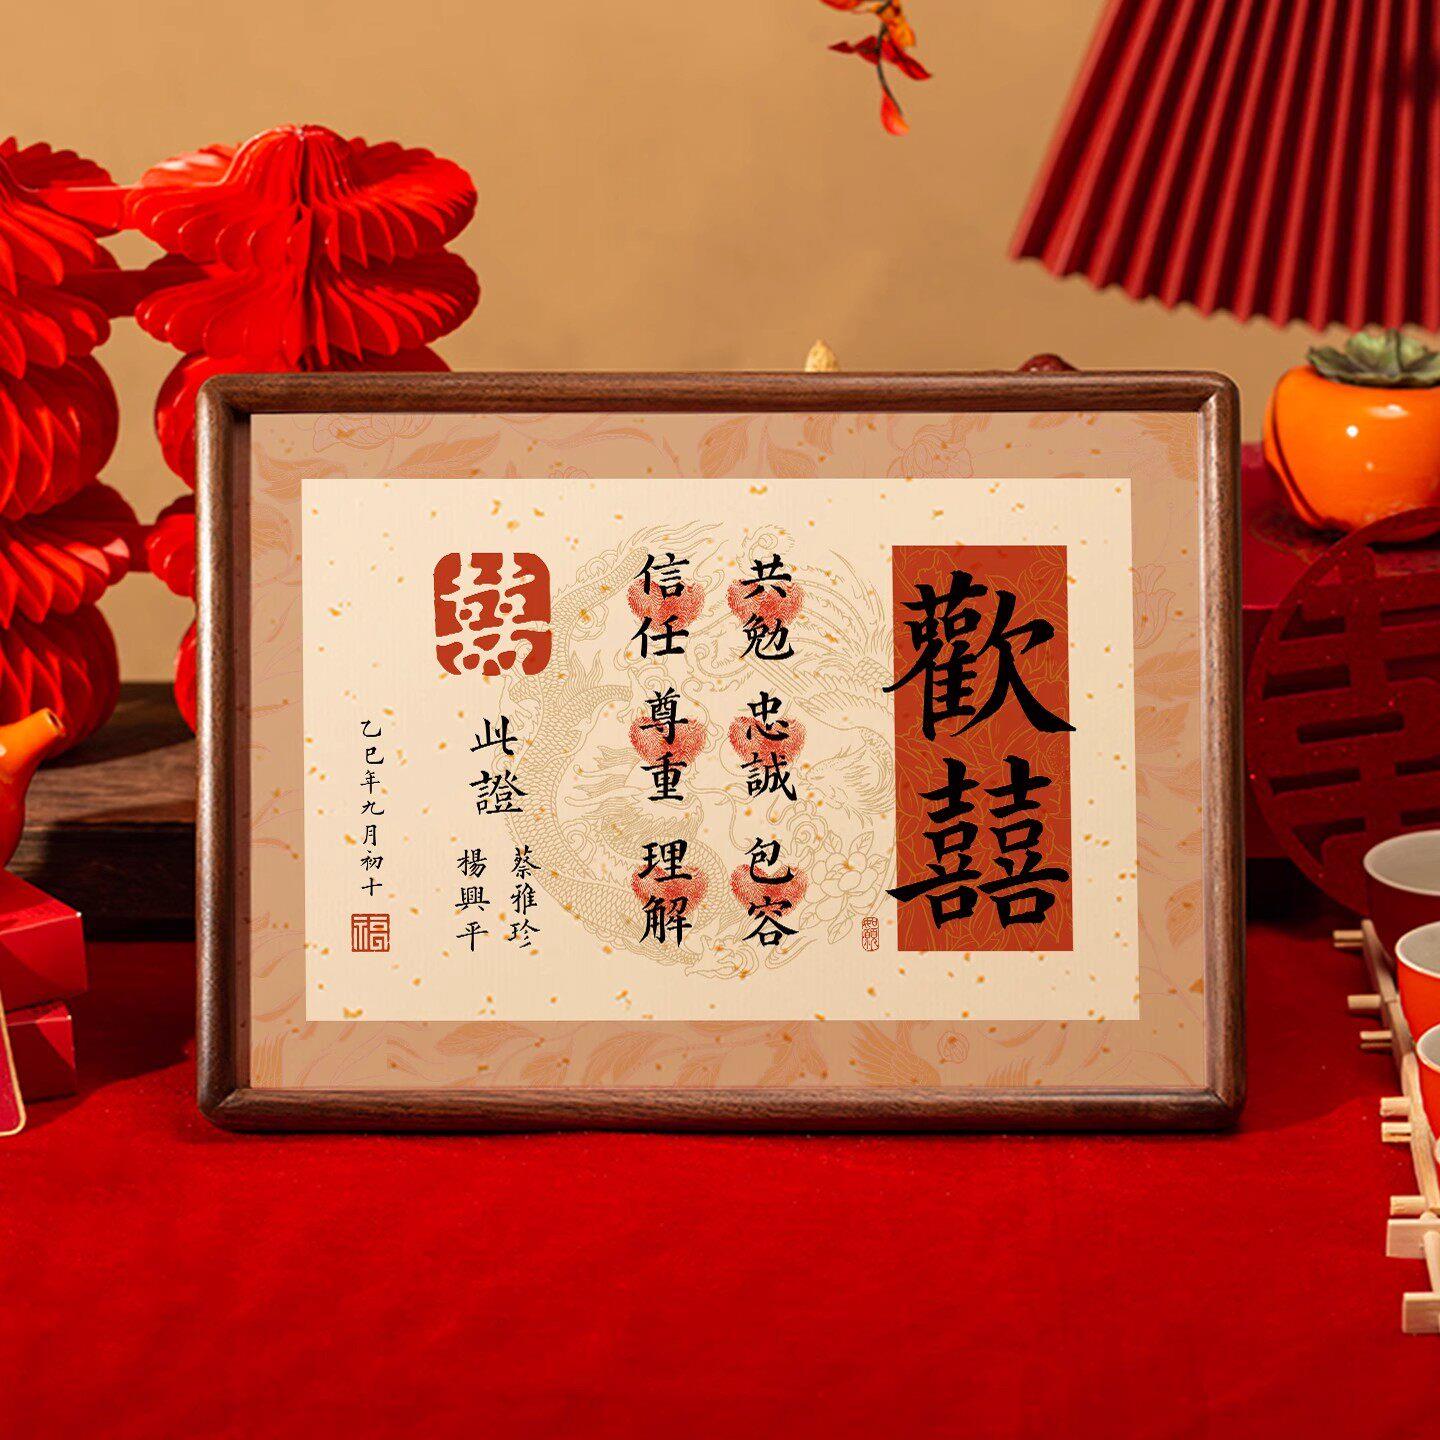 歡囍
共勉 忠誠 包容
信任 尊重 理解
囍
此證
蔡雅珍
楊興平
乙巳年九月初十
福